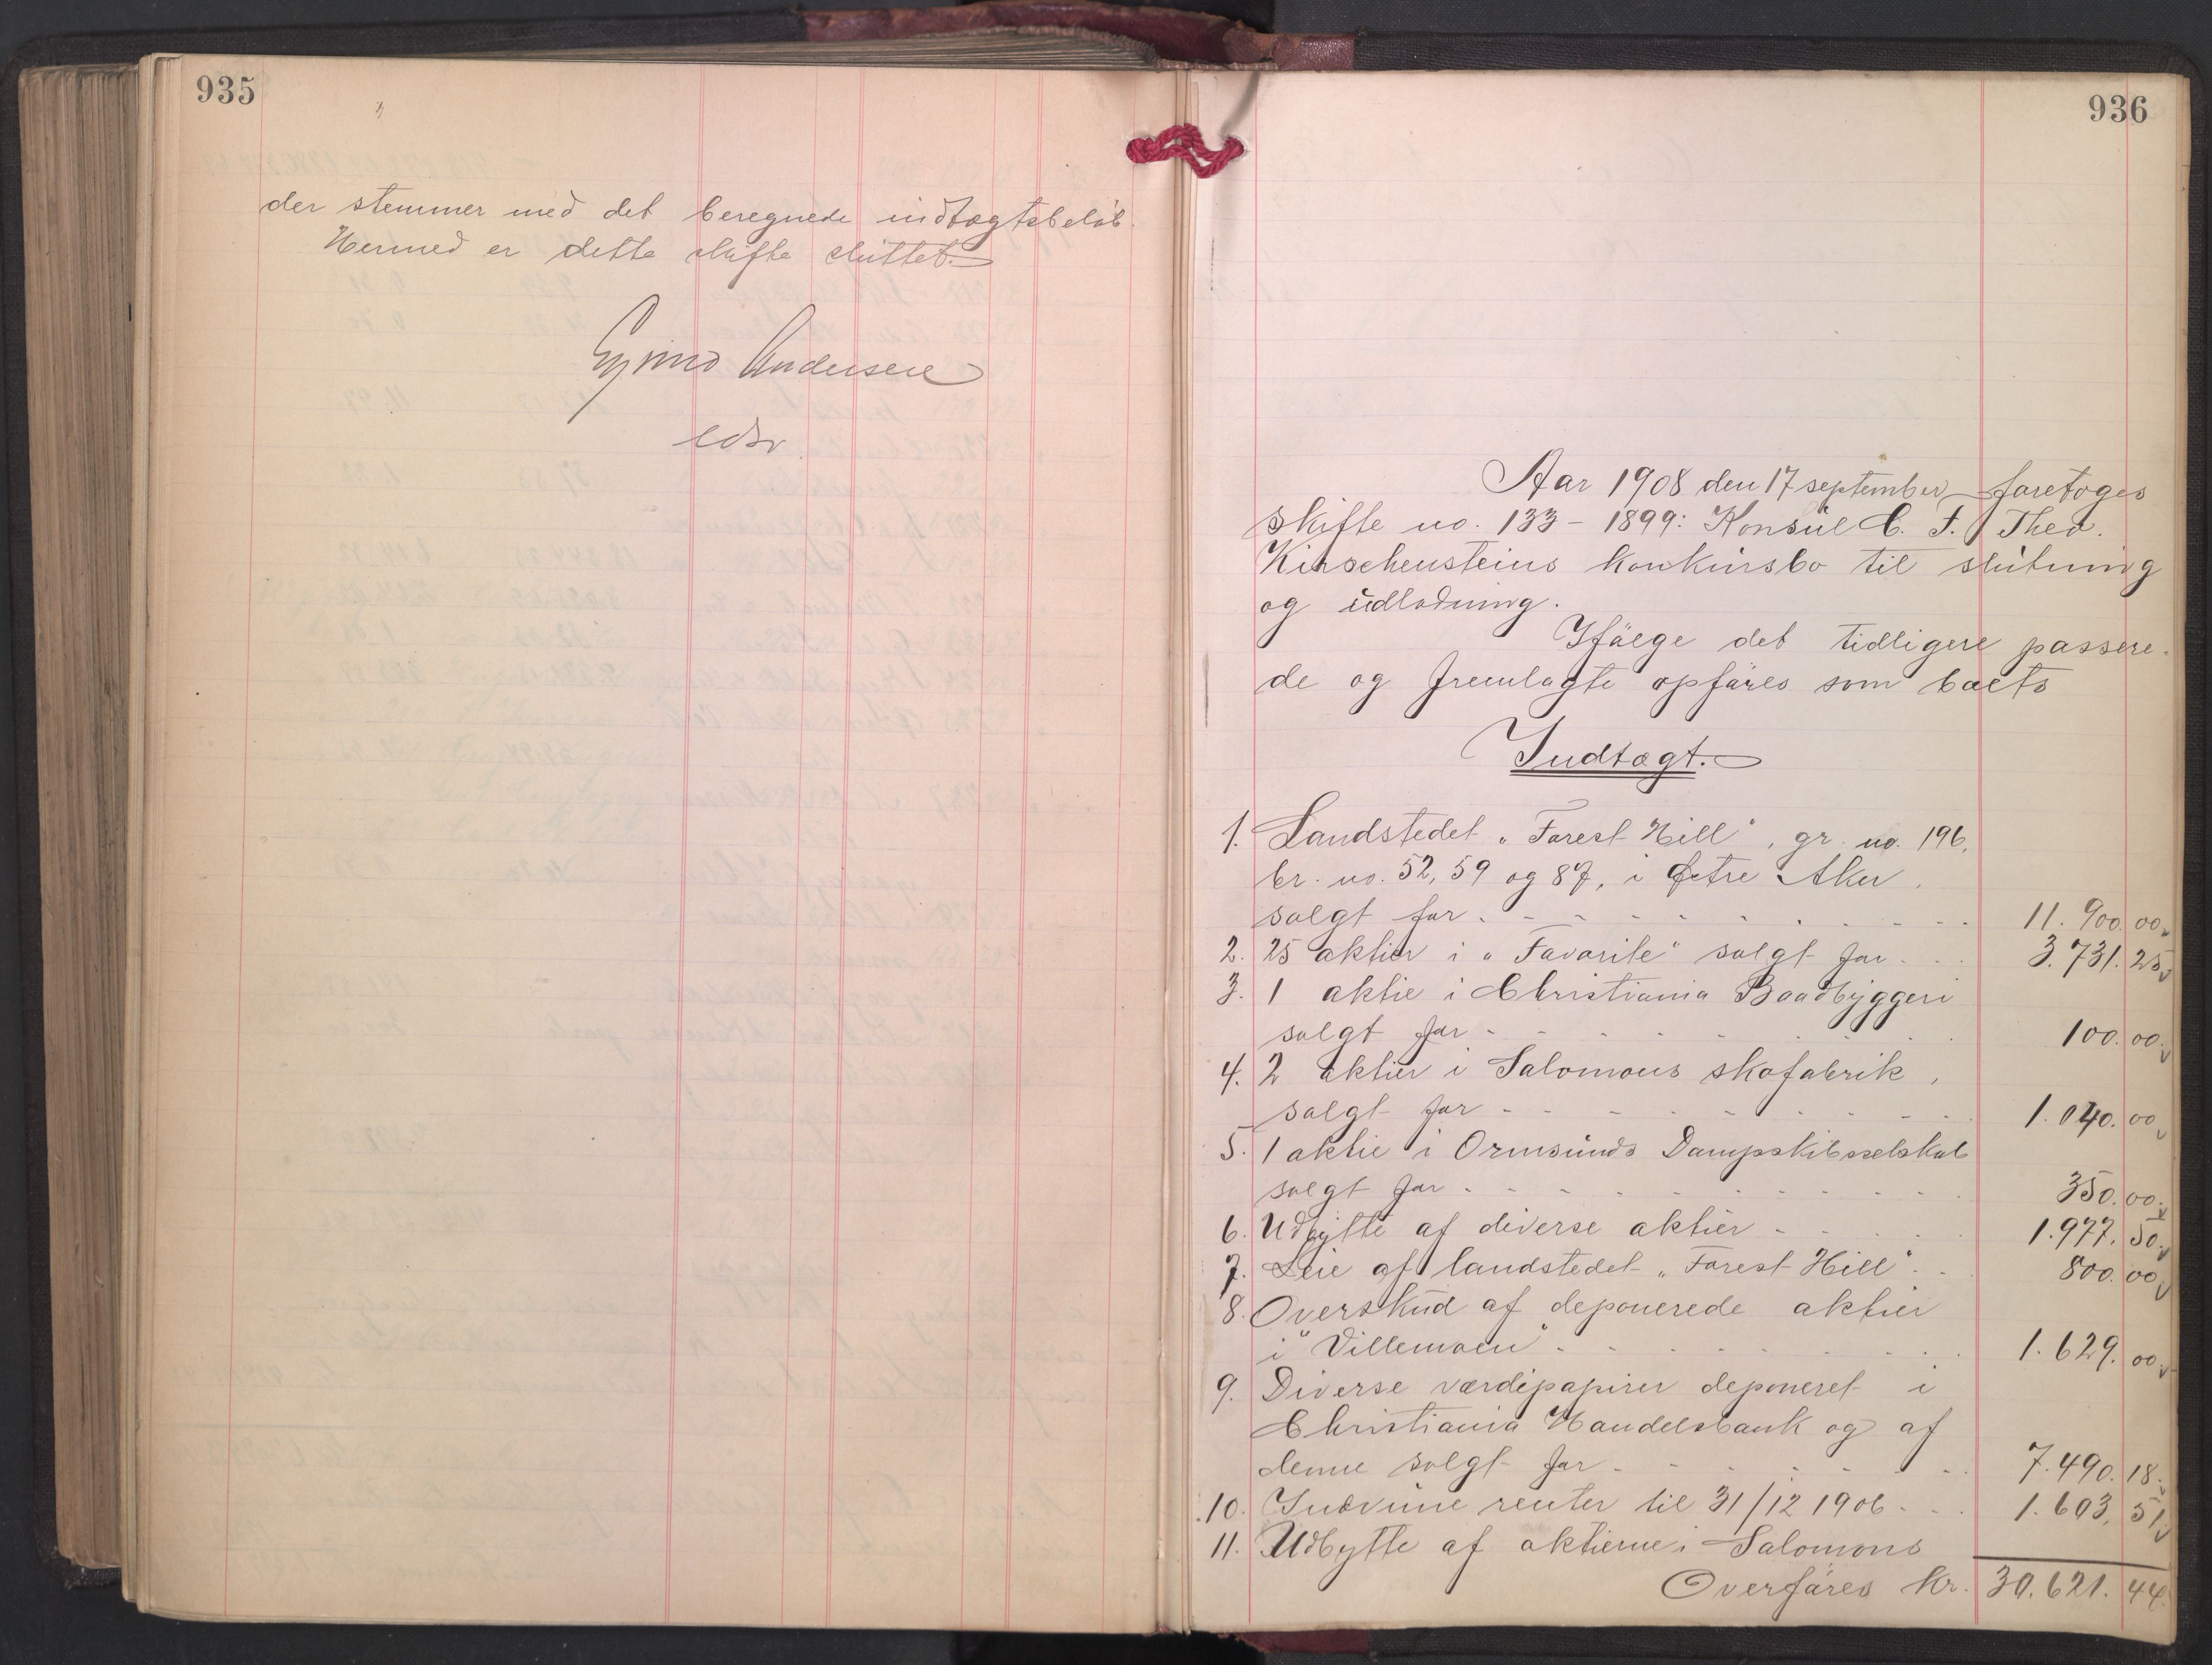 935
der stemmer med det beregnede indtægtsbeløb.
Hermed er dette skifte sluttet.
Eyvind Andersen
edsv.
936
Aar 1908 den 17 september foretoges
skifte no. 133 - 1899: Konsul C. F. Theo.
Kirschensteins konkursbo til slutning
og udlodning.
Ifølge det tidligere passere-
de og fremlagte opføres som boets
Indtægt.
1. Landstedet "Forest Hill", gr. no. 196,
br. no. 52, 59 og 87, i Østre Aker,
solgt for - - - 11.900.00
2. 25 aktier i "Favorite" solgt for - - 3.731.25
3. 1 aktie i Christiania Baadbyggeri
solgt for - - - 100.00
4. 2 aktier i Salomons skofabrik,
solgt for - - - 1.040.00
5. 1 aktie i Ormsunds Dampskibsselskab
solgt for - - - 350.00
6. Udbytte af diverse aktier - - 1.977.50
7. Leie af landstedet "Forest Hill" - - 800.00
8. Overskud af deponerede aktier
i "Villemoen" - - - 1.629.00
9. Diverse værdipapirer deponeret i
Christiania Handelsbank og af
denne solgt for - - - 7.490.18
10. Indvune renter til 31/12 1906 - - 1.603.51
11. Udbytte af aktierne i Salomons
Overføres kr. 30.621.44